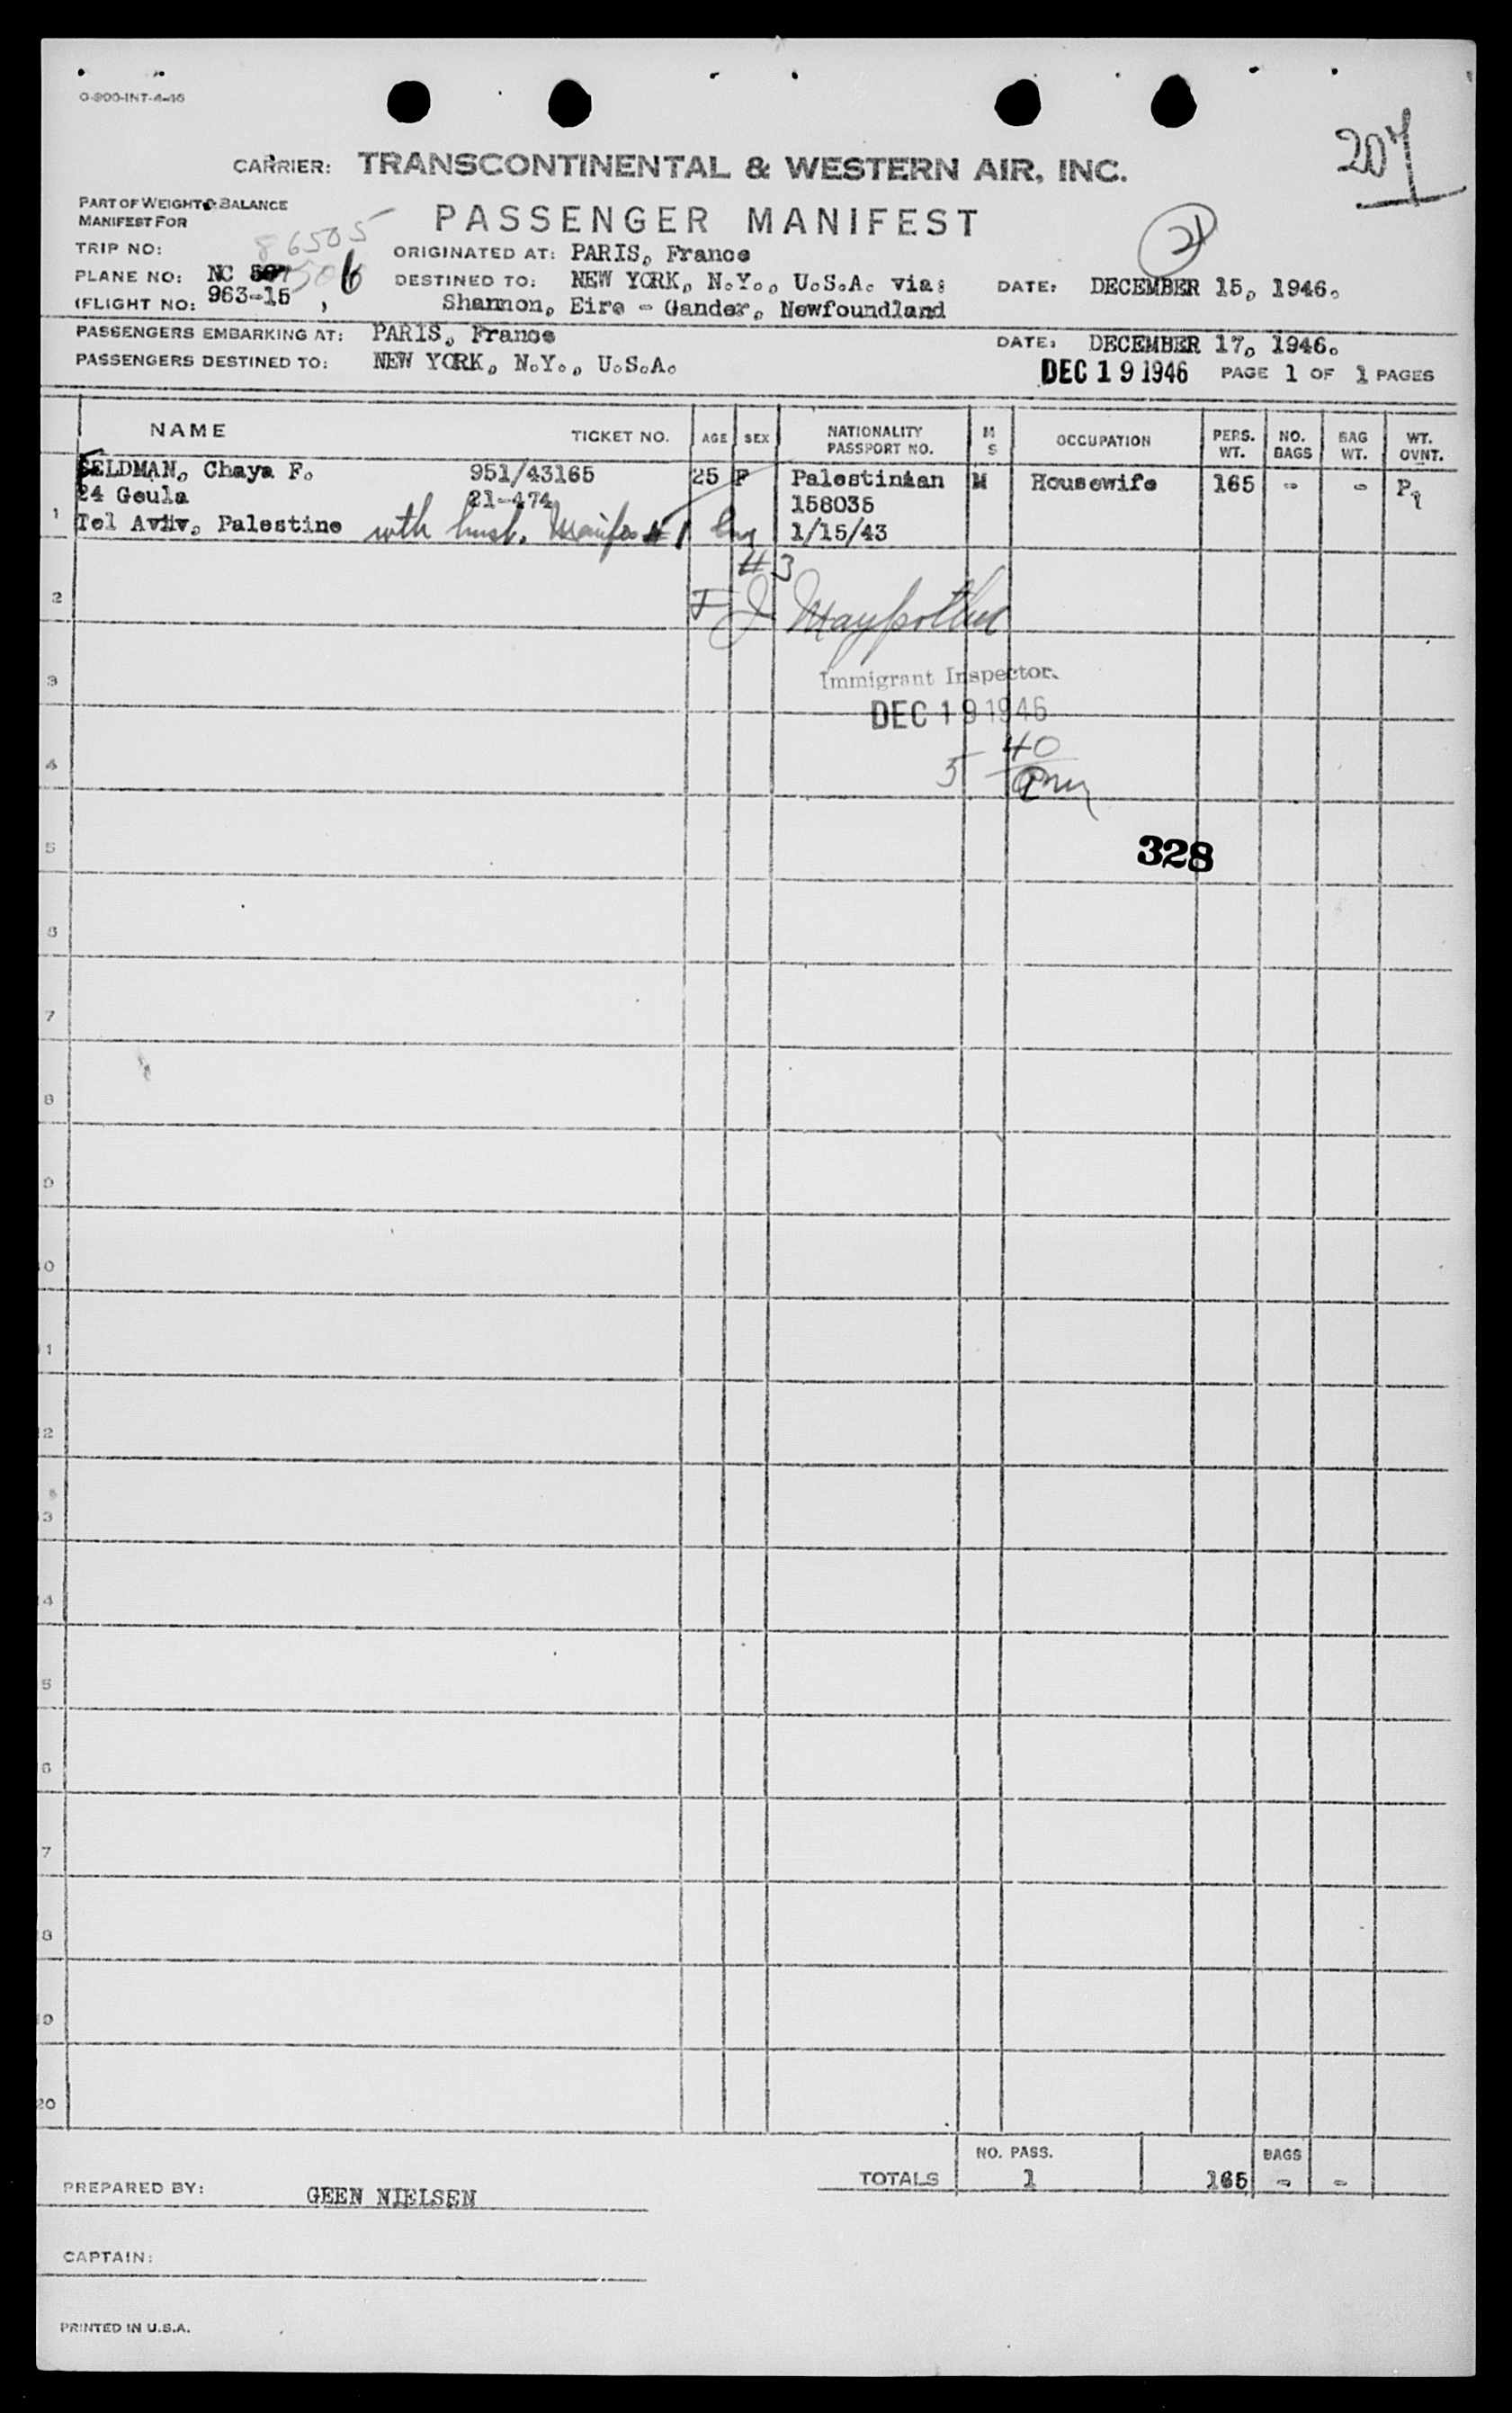 O-900-INT-4-46
207
CARRIER: TRANSCONTINENTAL & WESTERN AIR, INC.
PART OF WEIGHT & BALANCE
MANIFEST FOR
PASSENGER MANIFEST
86505
2
TRIP NO:
ORIGINATED AT: PARIS, France
PLANE NO: NC 506
DESTINED TO: NEW YORK, N.Y., U.S.A. via:
DATE: DECEMBER 15, 1946.
(FLIGHT NO: 963-15 ,
Shannon, Eire - Gander, Newfoundland
PASSENGERS EMBARKING AT: PARIS, France
DATE: DECEMBER 17, 1946.
PASSENGERS DESTINED TO: NEW YORK, N.Y., U.S.A.
DEC 19 1946 PAGE 1 OF 1 PAGES
NAME TICKET NO. AGE SEX NATIONALITY PASSPORT NO. M S OCCUPATION PERS. WT. NO. BAGS BAG WT. WT. OVNT.
FELDMAN, Chaya F. 951/43165 25 F Palestinian M Housewife 165 - -
24 Geula 21-474 158035
1 Tel Aviv, Palestine with husb. Manifes #1 1/15/43
#3
2
Immigrant Inspector.
3
DEC 19 1946
40
4 5
328
5
6
7
8
9
10
11
12
13
14
15
16
17
18
19
20
NO. PASS. BAGS
TOTALS 1 165 - -
PREPARED BY: GEEN NIELSEN
CAPTAIN:
PRINTED IN U.S.A.